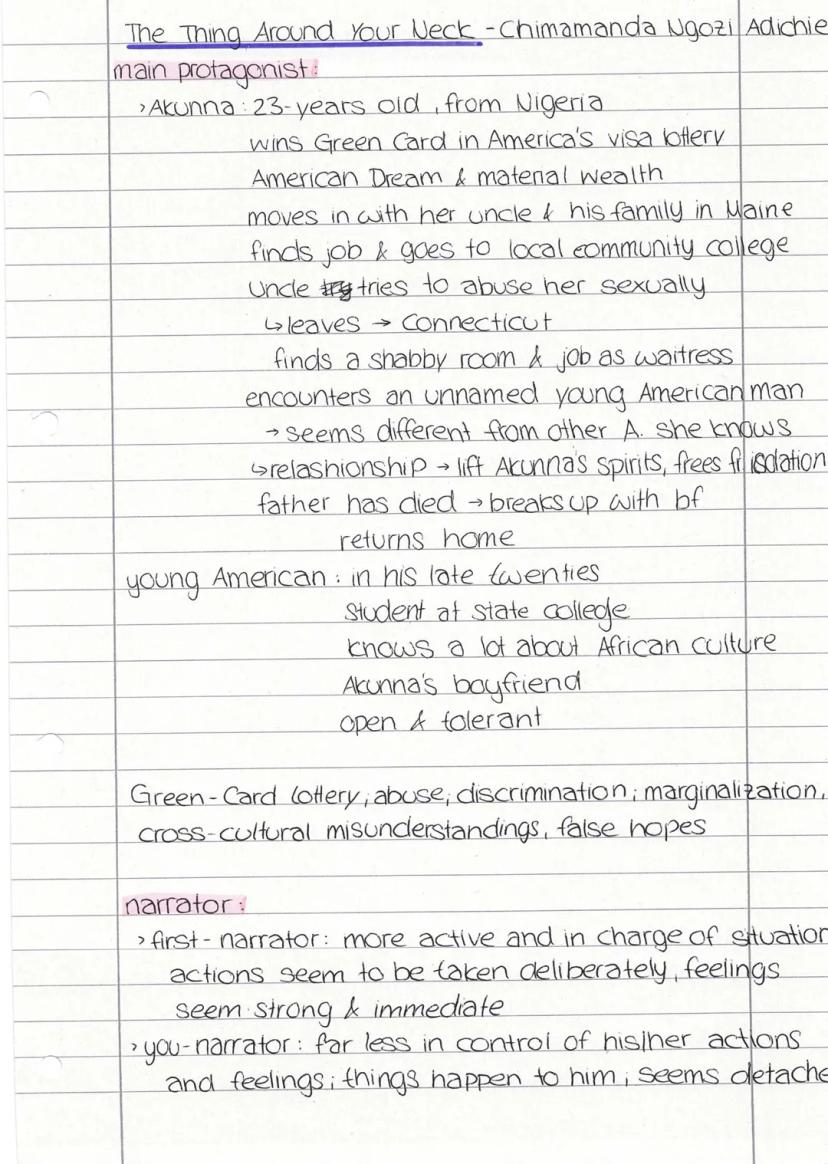 The Thing Around Your Neck - Chimamanda Ngozi Adichie
main protagonist:
› Akunna: 23-years old, from Nigeria
wins Green Card in America's visa lottery
American Dream & material wealth
moves in with her uncle & his family in Maine
finds job & goes to local community college
Uncle tries to abuse her sexually
↳ leaves → Connecticut
finds a shabby room & job as waitress
encounters an unnamed young American man
→ seems different from other A. she knows
↳ relashionship → lift Akunna's spirits, frees fr isolation
father has died → breaks up with bf
returns home
young American: in his late twenties
Student at state college
knows a lot about African culture
Akunna's boyfriend
open & tolerant
Green-Card lottery; abuse; discrimination; marginalization,
cross-cultural misunderstandings, false hopes
narrator:
› first-narrator: more active and in charge of situation
actions seem to be taken deliberately, feelings
seem strong & immediate
› you-narrator: far less in control of his/her actions
and feelings; things happen to him; seems detache